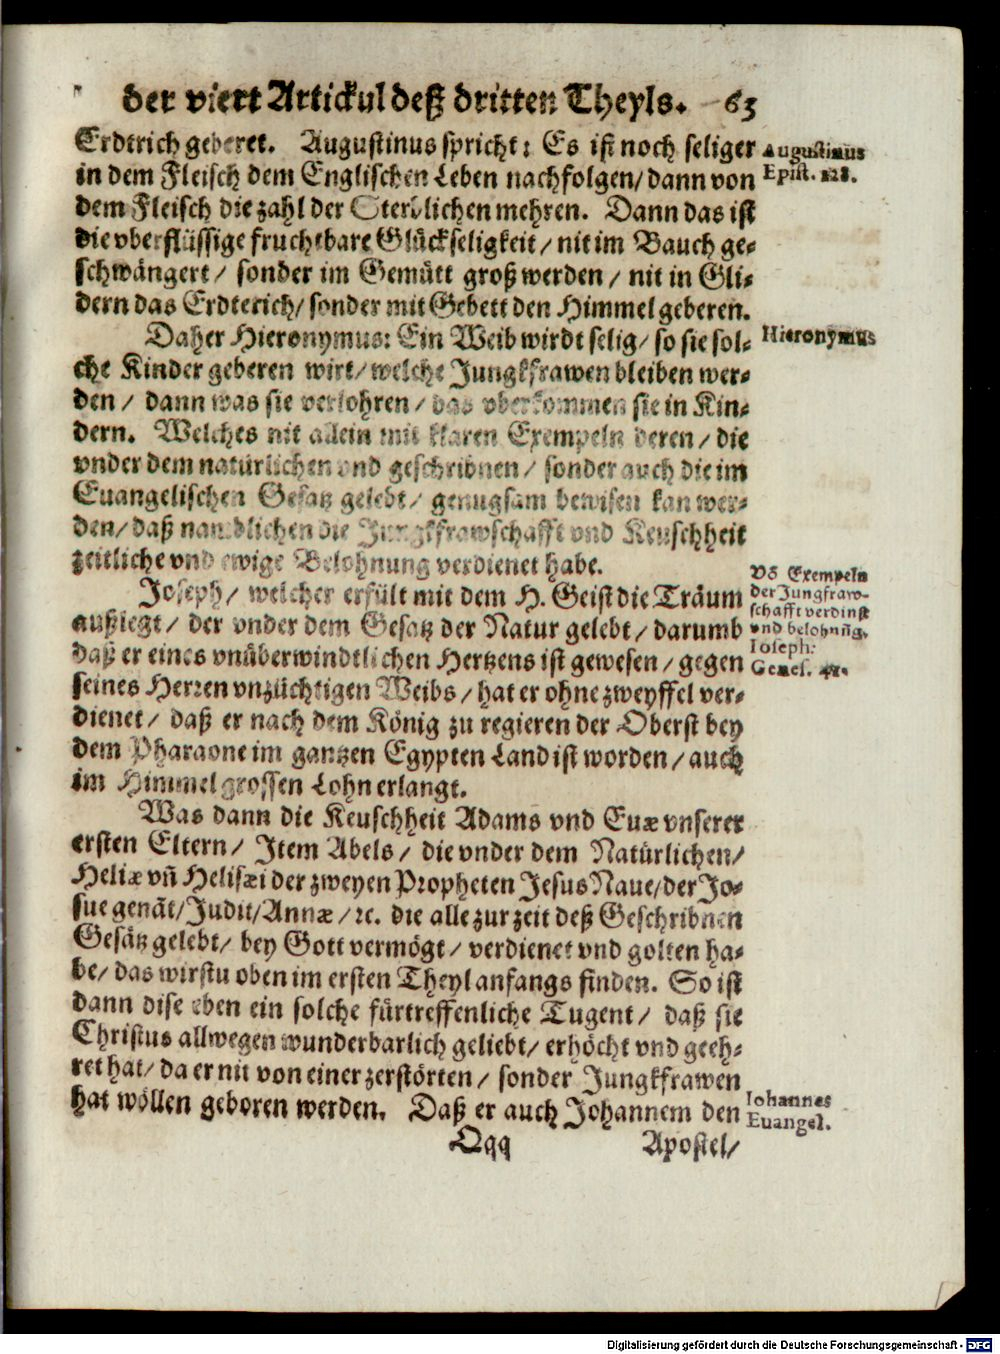 der viert Artickul deß dritten Theyls. 63
Erdtrich geberet. Augustinus spricht: Es ist noch seliger
in dem Fleisch dem Englischen Leben nachfolgen/ dann von
dem Fleisch die zahl der Sterblichen mehren. Dann das ist
die vberflüssige fruchtbare Glückseligkeit/ nit im Bauch ge-
schwängert/ sonder im Gemütt groß werden/ nit in Gli-
dern das Erdterich/ sonder mit Gebett den Himmel geberen.
Augustinus
Epist. 128.
Daher Hieronymus: Ein Weib wirdt selig/ so sie sol-
che Kinder geberen wirt/ welche Jungkfrawen bleiben wer-
den/ dann was sie verlohren/ das vberkommen sie in Kin-
dern. Welches nit allein mit klaren Exempeln deren/ die
vnder dem natürlichen vnd geschribnen/ sonder auch die im
Euangelischen Gesatz gelebt/ genugsam bewisen kan wer-
den/ daß namdlichen die Jungkfrawschafft vnd Keuschheit
zeitliche vnd ewige Belohnung verdienet habe.
Hieronymus
Joseph/ welcher erfült mit dem H. Geist die Träum
außlegt/ der vnder dem Gesatz der Natur gelebt/ darumb
daß er eines vnüberwindtlichen Hertzens ist gewesen/ gegen
seines Herren vnzüchtigen Weibs/ hat er ohne zweyffel ver-
dienet/ daß er nach dem König zu regieren der Oberst bey
dem Pharaone im gantzen Egypten Land ist worden/ auch
im Himmel grossen Lohn erlangt.
Võ Exempeln
der Jungfraw-
schafft verdinst
vnd belohnũg.
Ioseph:
Genes. 41.
Was dann die Keuschheit Adams vnd Euæ vnserer
ersten Eltern/ Item Abels/ die vnder dem Natürlichen/
Heliæ vñ Helisæi der zweyen Propheten Jesus Naue/ der Jo-
sue genãt/ Judit/ Annæ/ ꝛc. die alle zur zeit deß Geschribnen
Gesätz gelebt/ bey Gott vermögt/ verdienet vnd golten ha-
be/ das wirstu oben im ersten Theyl anfangs finden. So ist
dann dise eben ein solche fürtreffenliche Tugent/ daß sie
Christus allwegen wunderbarlich geliebt/ erhöcht vnd geeh-
ret hat/ da er nit von einer zerstörten/ sonder Jungkfrawen
hat wöllen geboren werden. Daß er auch Johannem den
Iohannes
Euangel.
Qqq Apostel/
Digitalisierung gefördert durch die Deutsche Forschungsgemeinschaft - DFG